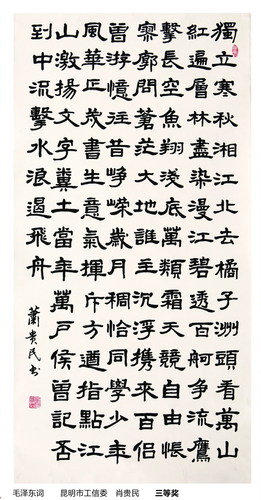 獨立寒秋湘江北去橘子洲頭看萬山
紅遍層林盡染漫江碧透百舸争流鷹
擊長空魚翔淺底萬類霜天競自由悵
寥廓問蒼茫大地誰主沉浮携來百侣
曾游憶往昔崢嶸歲月稠恰同學少年
風華正茂書生意氣揮斥方遒指點江
山激揚文字糞土當年萬户侯曾記否
到中流擊水浪遏飛舟
蕭貴民书
毛泽东词 昆明市工信委 肖贵民 三等奖